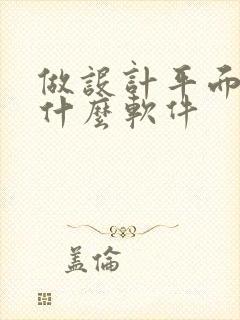 做設計平面
什麼軟件
盖倫